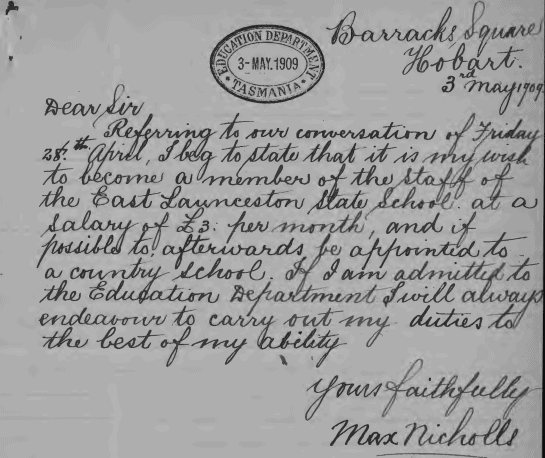 Barracks Square
Hobart.
3rd May 1909
EDUCATION DEPARTMENT
3-MAY.1909
TASMANIA
Dear Sir
Referring to our conversation of Friday
28th April, I beg to state that it is my wish
to become a member of the staff of
the East Launceston State School at a
salary of £3: per month, and if
possible to, afterwards be appointed to
a country school. If I am admitted to
the Education Department I will always
endeavour to carry out my duties to
the best of my ability
Yours faithfully
Max Nicholls